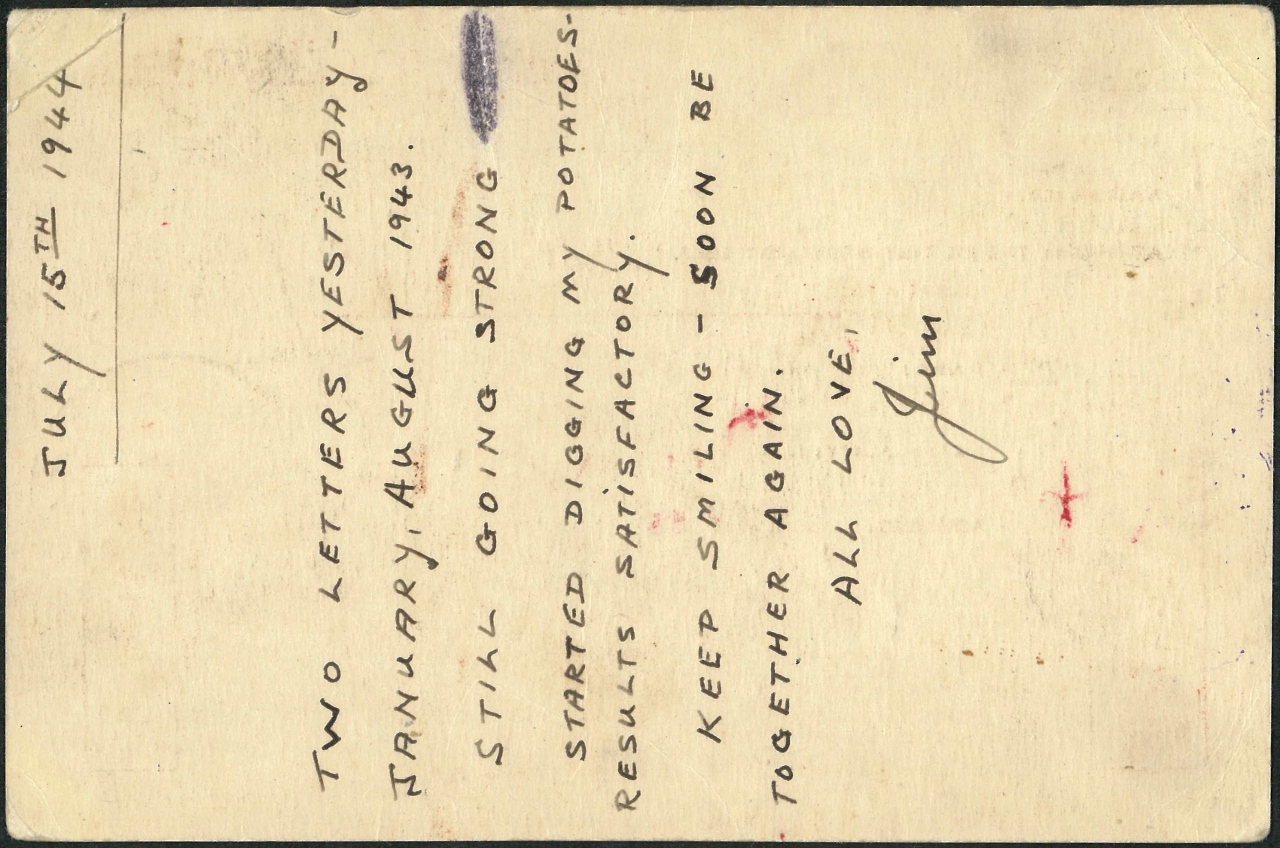 JULY 15TH 1944
TWO LETTERS YESTERDAY -
JANUARY, AUGUST 1943.
STILL GOING STRONG
STARTED DIGGING MY POTATOES-
RESULTS SATISFACTORY.
KEEP SMILING - SOON BE
TOGETHER AGAIN.
ALL LOVE,
Jim